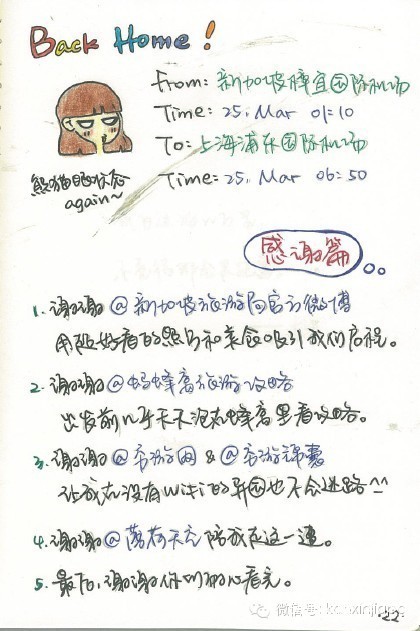 Back Home!
From: 新加坡樟宜国际机场
Time: 25. Mar 01:10
To: 上海浦东国际机场
Time: 25. Mar 06:50
熊猫眼状态
again~
感谢篇
1. 谢谢@新加坡旅游局官方微博
用超好看的照片和美食吸引我们启程。
2. 谢谢@蚂蜂窝旅游攻略
出发前几乎天天泡在蜂窝里看攻略。
3. 谢谢@穷游网 & @穷游锦囊
让我在没有wifi的异国也不会迷路^^
4. 谢谢@薄荷天 陪我走这一遭。
5. 最后,谢谢你们耐心看完。
22
微信号: kanxinjiapo